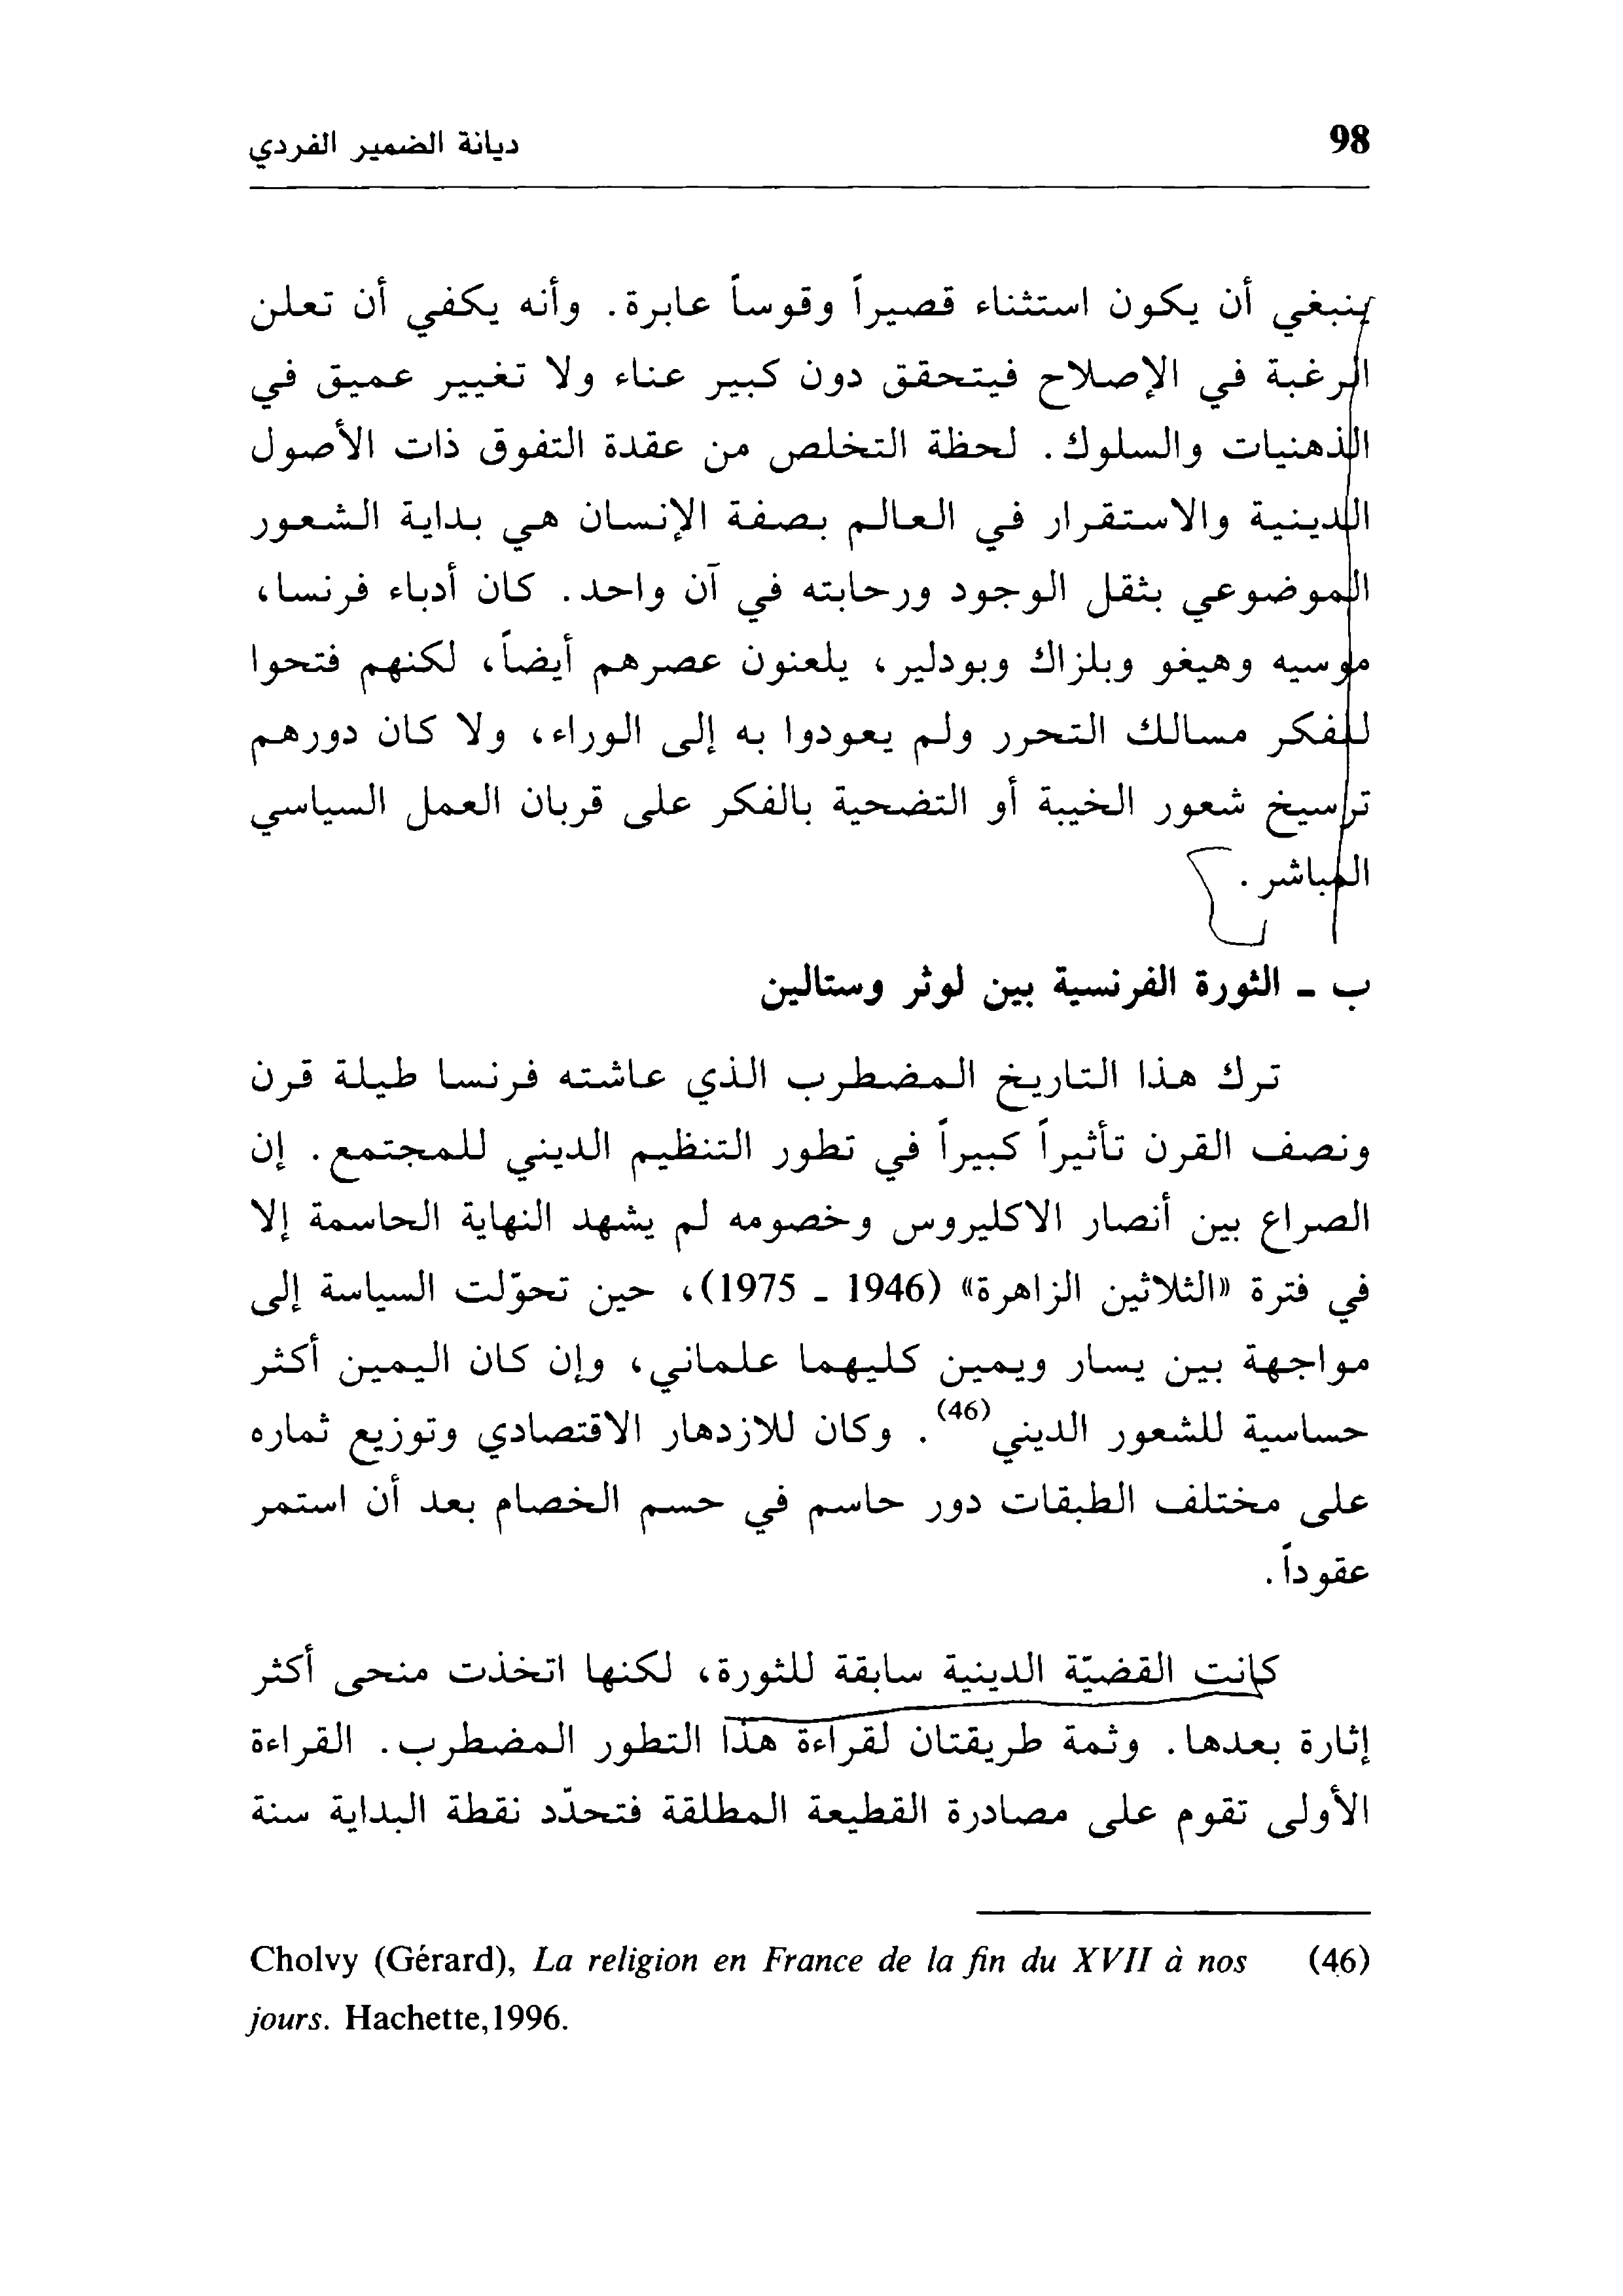 98
ديانة الضمير الفردي
ينبغي أن يكون استثناء قصيراً وقوساً عابرة. وأنه يكفي أن تعلن
الرغبة في الإصلاح فيتحقق دون كبير عناء ولا تغيير عميق في
الذهنيات والسلوك. لحظة التخلص من عقدة التفوق ذات الأصول
الدينية والاستقرار في العالم بصفة الإنسان هي بداية الشعور
الموضوعي بثقل الوجود ورحابته في آن واحد. كان أدباء فرنسا،
موسيه وهيغو وبلزاك وبودلير، يلعنون عصرهم أيضاً، لكنهم فتحوا
للفكر مسالك التحرر ولم يعودوا به إلى الوراء، ولا كان دورهم
ترسيخ شعور الخيبة أو التضحية بالفكر على قربان العمل السياسي
المباشر.
ب - الثورة الفرنسية بين لوثر وستالين
ترك هذا التاريخ المضطرب الذي عاشته فرنسا طيلة قرن
ونصف القرن تأثيراً كبيراً في تطور التنظيم الديني للمجتمع. إن
الصراع بين أنصار الاكليروس وخصومه لم يشهد النهاية الحاسمة إلا
في فترة «الثلاثين الزاهرة» (1946 - 1975)، حين تحوّلت السياسة إلى
مواجهة بين يسار ويمين كليهما علماني، وإن كان اليمين أكثر
حساسية للشعور الديني(46). وكان للازدهار الاقتصادي وتوزيع ثماره
على مختلف الطبقات دور حاسم في حسم الخصام بعد أن استمر
عقوداً.
كانت القضيّة الدينية سابقة للثورة، لكنها اتخذت منحى أكثر
إثارة بعدها. وثمة طريقتان لقراءة هذا التطور المضطرب. القراءة
الأولى تقوم على مصادرة القطيعة المطلقة فتحدّد نقطة البداية سنة
(46) Cholvy (Gérard), La religion en France de la fin du XVII à nos
jours. Hachette,1996.